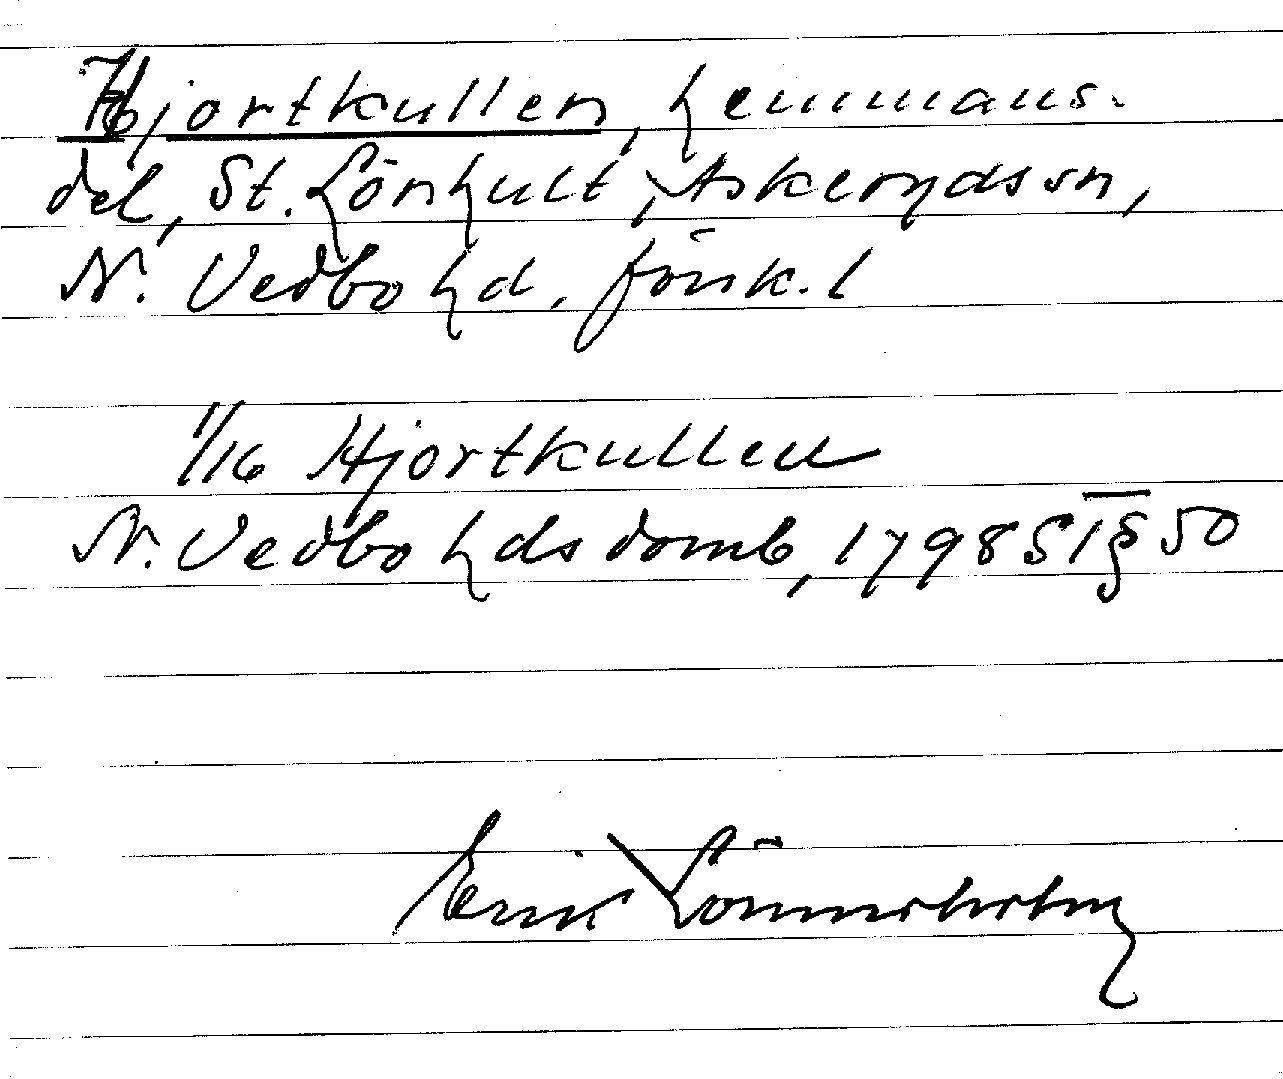 Hjortkullen, hemmans-
del, St. Lönhult, Askeryds sn,
N. Vedbo hd, Jönk. l
1/16 Hjortkullen
N. Vedbo hds domb, 1798 S I § 50
Erik Lönnerholm